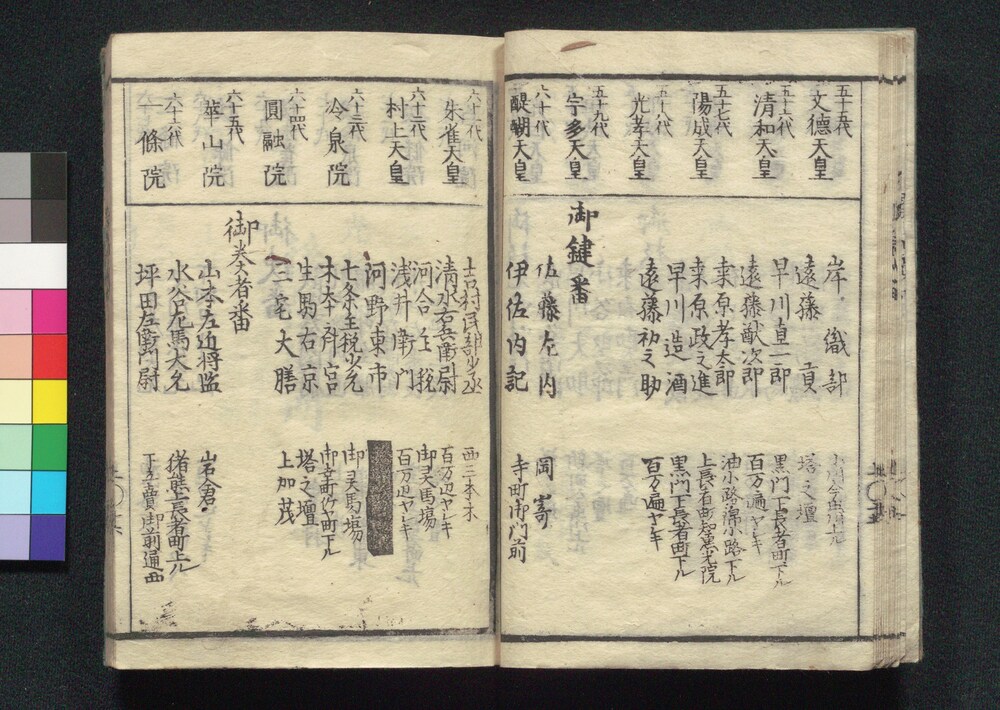 五十五代
文德天皇
五十六代
清和天皇
五十七代
陽成天皇
五十八代
光孝天皇
五十九代
宇多天皇
六十代
醍醐天皇
岸 織部
遠藤 貢
塔之壇
早川直一郎
黒門下長者町下ル
遠藤猷次郎
百万遍ヤシキ
桒原孝太郎
油小路綿小路下ル
桒原政之進
上長者町智恵光院
早川造酒
黒門下長者町下ル
遠藤初之助
百万遍ヤシキ
御鍵番
佐藤左内
岡嵜
伊佐内記
寺町御門前
六十一代
朱雀天皇
六十二代
村上天皇
六十三代
冷泉院
六十四代
圓融院
六十五代
華山院
六十六代
一條院
吉村民部少丞
西三本木
清水右兵衛尉
百万辺ヤシキ
河合主税
御灵馬場
浅井衛門
百万辺ヤシキ
河野東市
七条主税少允
御灵馬場
木本斉宮
御幸町竹ヤ町下ル
生駒右京
塔之壇
三宅大膳
上加茂
御奏者番
山本左近将監
岩倉
水谷左馬大允
猪熊上長者町上ル
坪田左衛門尉
下立賣御前通西